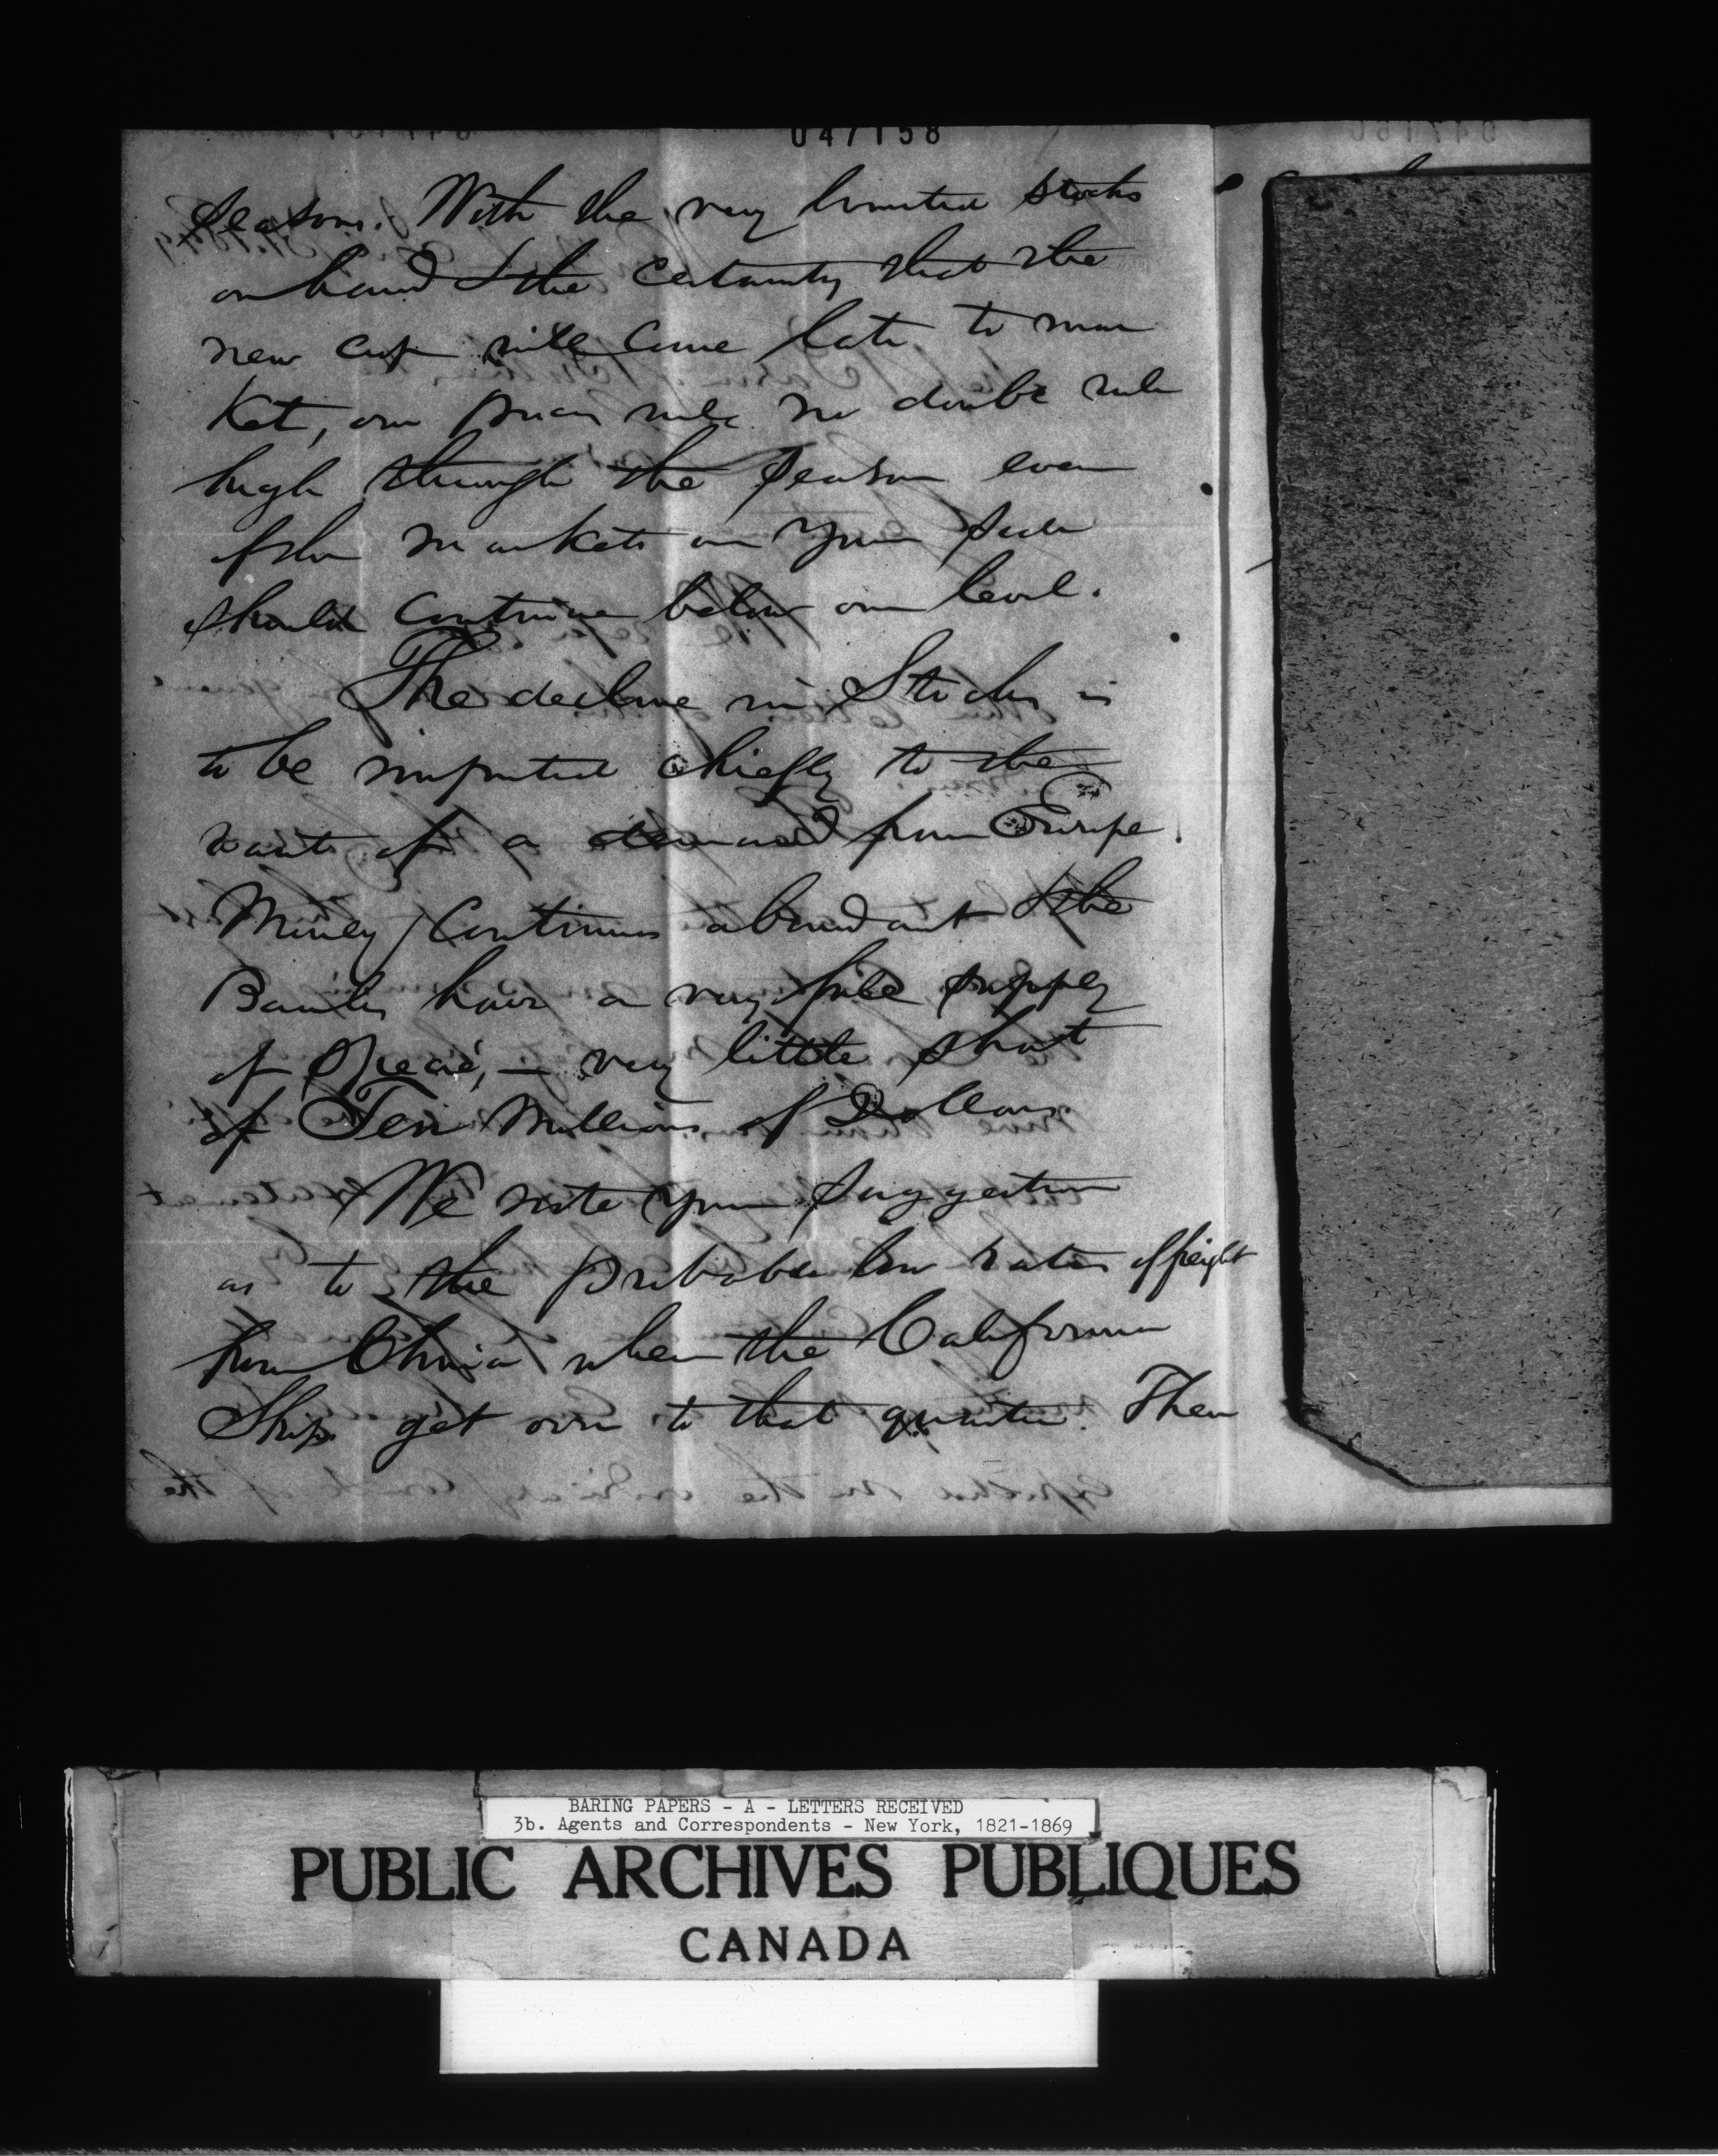 047158
seasons. With the very limited stocks
on hand & the certainty that the
new crop will come late to mar
ket, our prices will no doubt rule
high through the season even
if the markets on your side
should continue below our level.
The decline in Stocks is
to be imputed chiefly to the
want of a demand from Europe.
Money continues abundant & the
Banks have a very full supply
of Specie, — very little short
of Ten Millions of Dollars.
We note your suggestion
as to the probable low rates of freight
from China when the California
Ships get over to that quarter. Then
BARING PAPERS - A - LETTERS RECEIVED
3b. Agents and Correspondents - New York, 1821-1869
PUBLIC ARCHIVES PUBLIQUES
CANADA